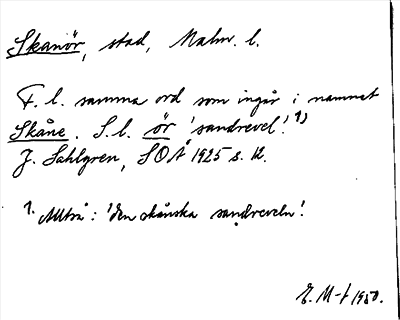 Skanör, stad, Malm. l.
F. l. samma ord som ingår i namnet
Skåne. S. l. ör 'sandrevel'. 1)
J. Sahlgren, SOÅ 1925 s. 12.
1. Alltså: 'den skånska sandreveln'.
E. M-t 1950.